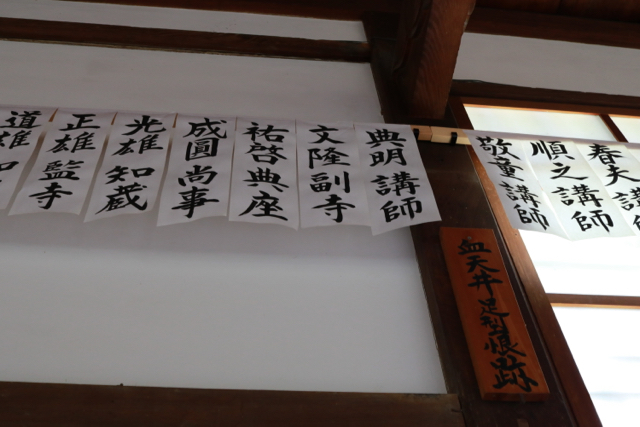 春夫講師
順之講師
敬童講師
典明講師
文隆副寺
祐啓典座
成圓尚事
光雄知蔵
正雄監寺
道雄知
血天井足型恨跡